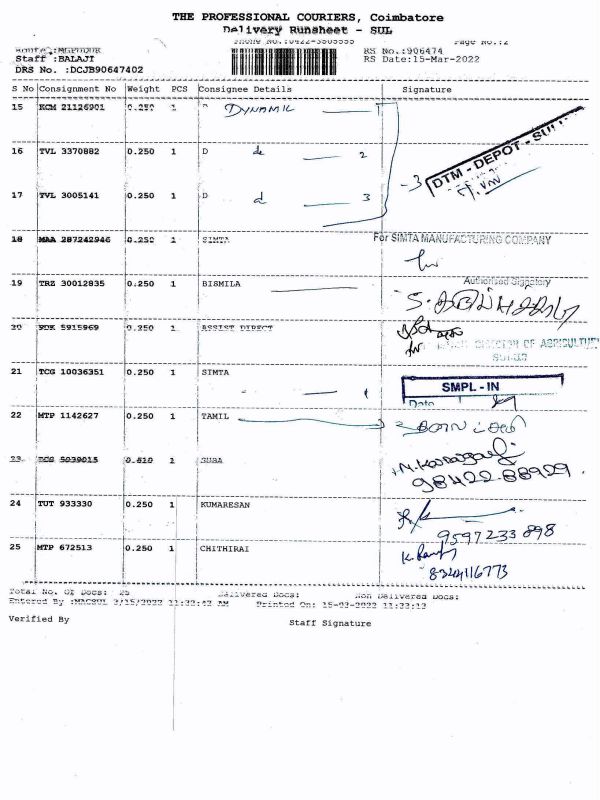 THE PROFESSIONAL COURIERS, Coimbatore
Delivery Runsheet - SUL
Phone No.:0422-3505555 Page No.:2
Staff :BALAJI RS No.:906474
DRS No. :DCJB90647402 RS Date:15-Mar-2022
S No Consignment No Weight PCS Consignee Details Signature
15 KCM 21126901 0.250 1 D DYNAMIC 1
DTM - DEPOT - SUL
16 TVL 3370882 0.250 1 D de 2
17 TVL 3005141 0.250 1 D d 3 -3
18 MAA 287242946 0.250 1 SIMTA For SIMTA MANUFACTURING COMPANY
Authorised Signatory
19 TRZ 30012835 0.250 1 BISMILA
20 5915969 0.250 1 ASSIST DIRECT
DIRECTOR OF AGRICULTURE
SULUR
21 TCG 10036351 0.250 1 SIMTA 1 SMPL - IN
Date
22 MTP 1142627 0.250 1 TAMIL
23 5039015 0.610 1 SUBA
98422 88929
24 TUT 933330 0.250 1 KUMARESAN
9597233898
25 MTP 672513 0.250 1 CHITHIRAI
8324116773
Total No. Of Docs: 25 Delivered Docs: Non Delivered Docs:
Entered By :MACSUL 3/15/2022 11:32:42 AM Printed On: 15-03-2022 11:33:13
Verified By Staff Signature